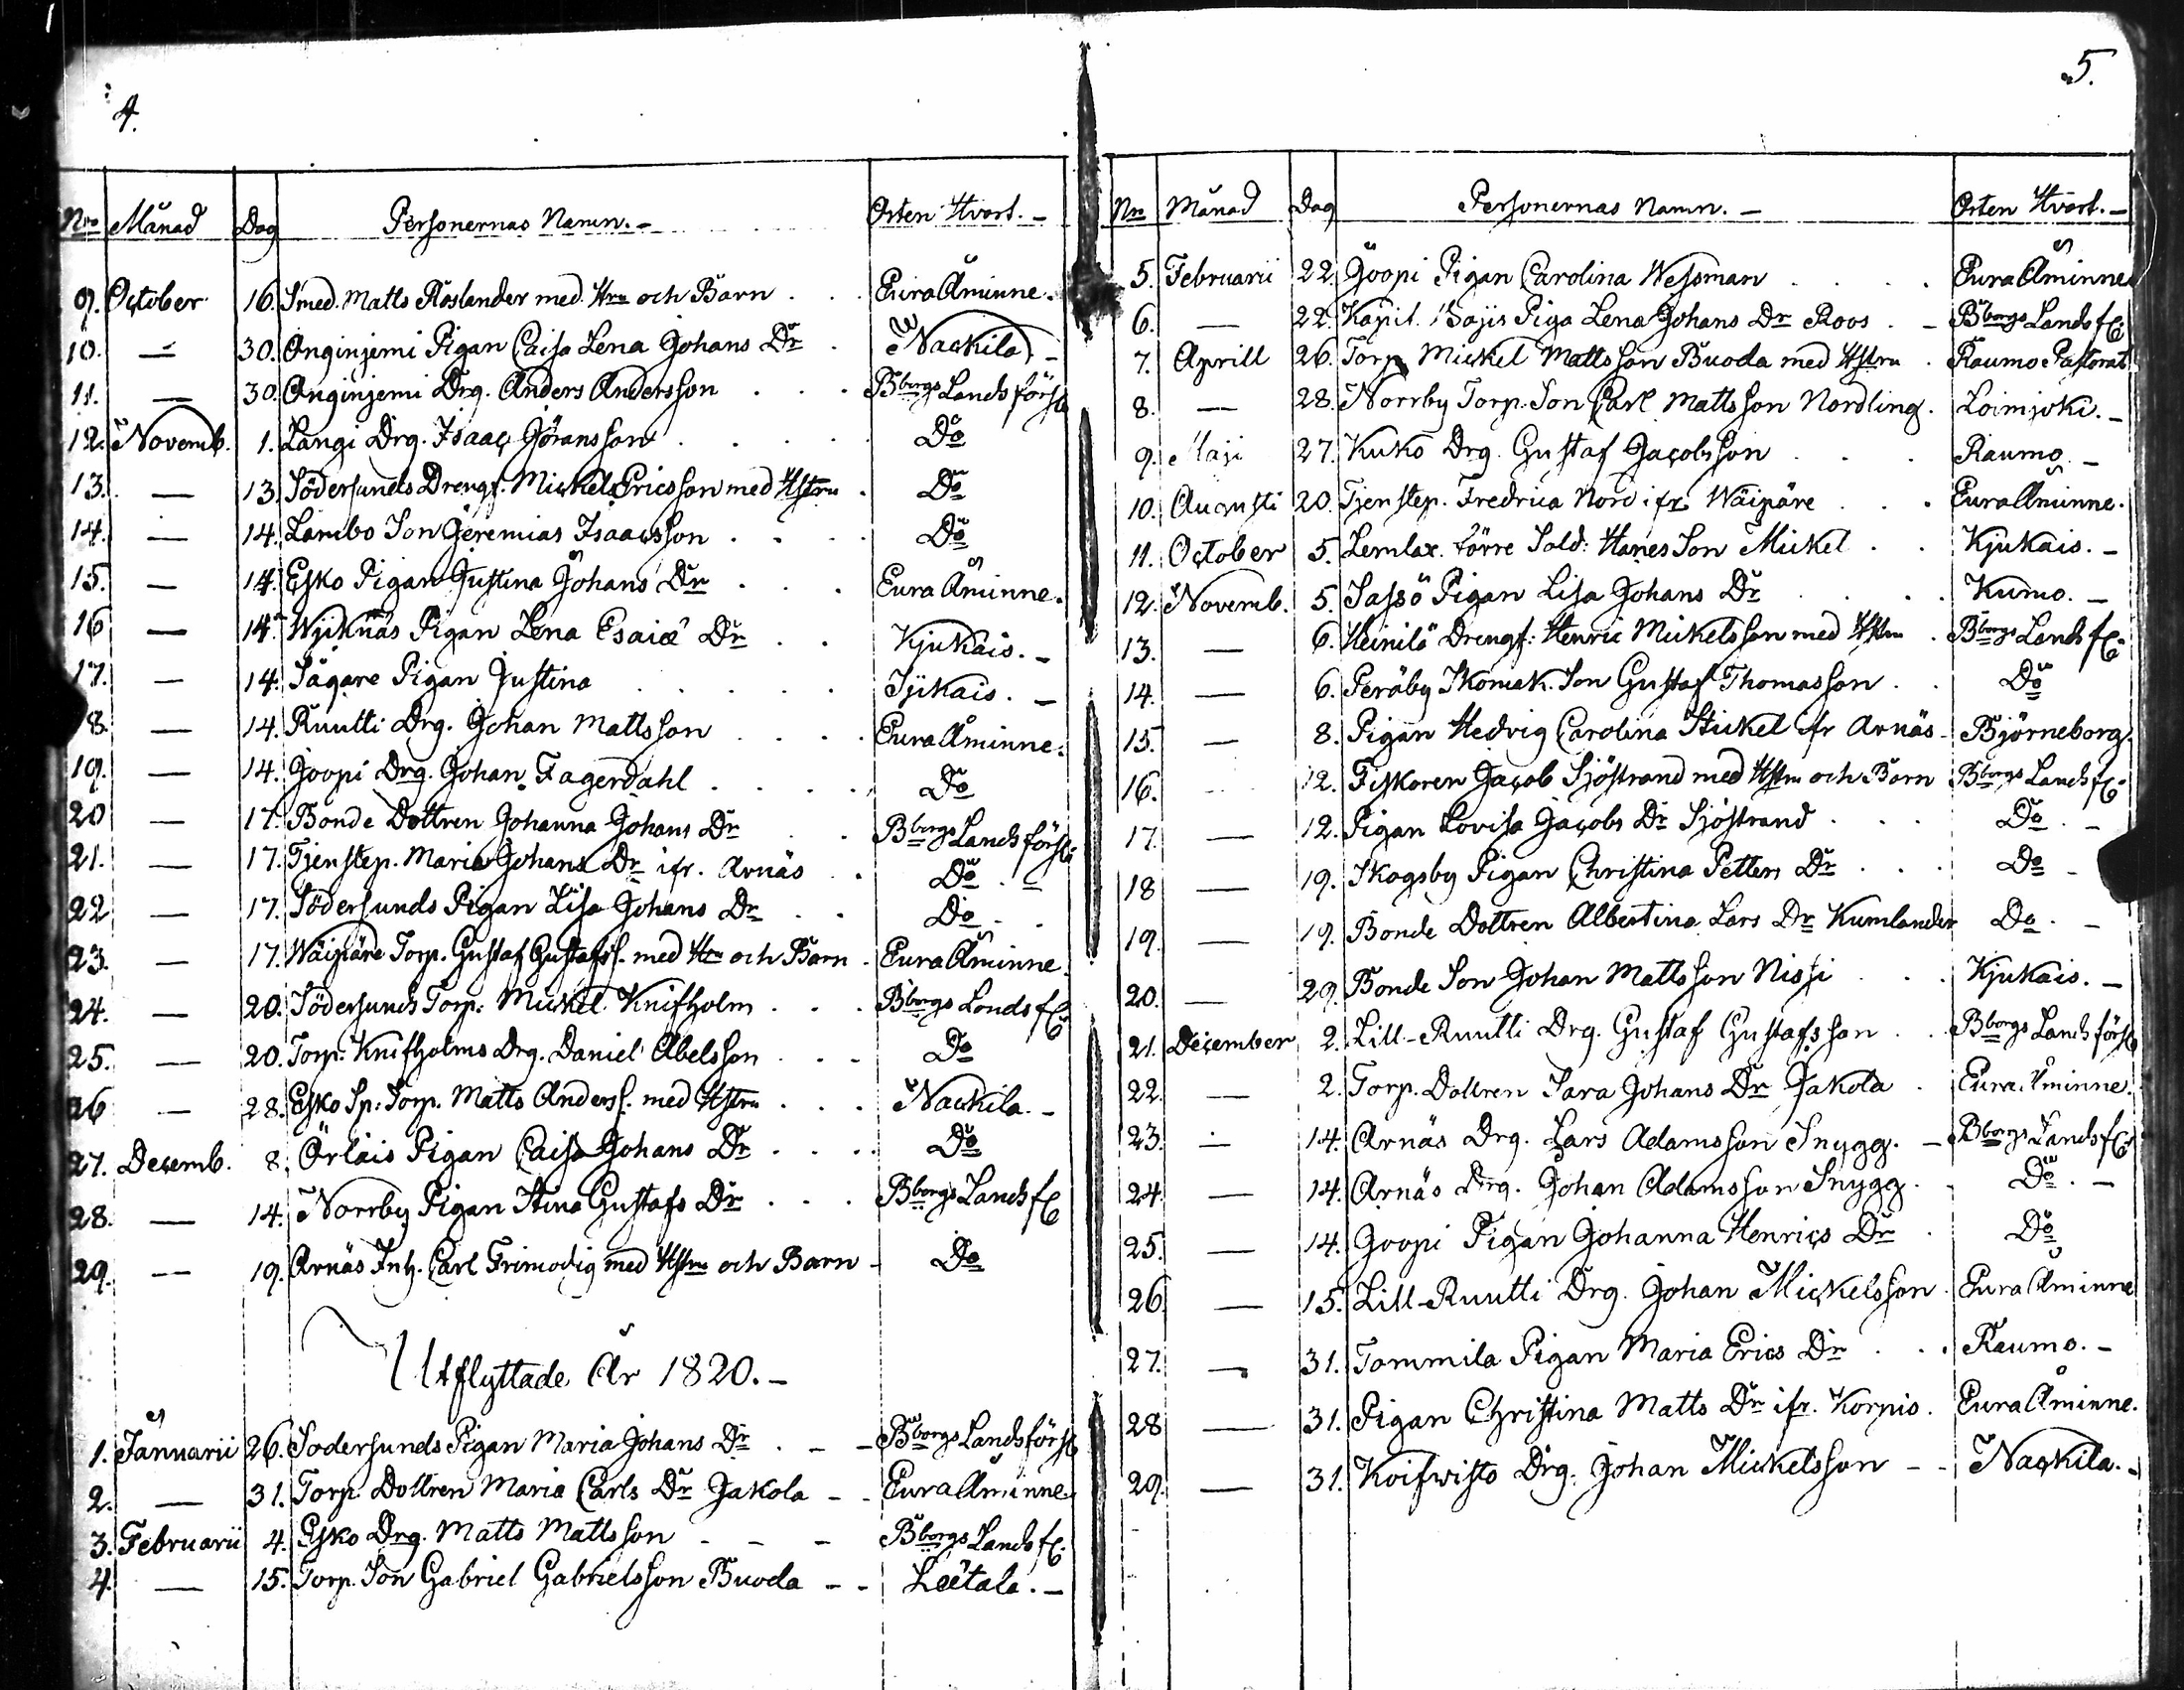 4.
Nro Månad Dag Personernas Namn. - Orten Hvart. -
9. October 16. Smed. Matts Roslander med Hru och Barn . . Eura Åminne.
10. — 30. Anginjemi Pigan Caisa Lena Johans Dr . Nackila. -
11. — 30. Anginjemi Drg. Anders Andersson . . . Bborgs Landsförsl
12. Novemb. 1. Langi Drg. Isaac Göransson . . . . Do
13. — 13. Södersunds Drengf. Mickel Ericsson med Hstru . Do
14. — 14. Lambo Son Jeremias Isaacsson . . . . Do
15. — 14. Esko Pigan Justina Johans Dr . . . Eura Åminne.
16 — 14. Wjiknäs Pigan Lena Esaiæ Dr . . Kjukais. -
17. — 14. Sågare Pigan Justina . . . . . Kjukais. -
18. — 14. Ruutti Drg. Johan Mattsson . . . . Eura Åminne.
19. — 14. Joopi Drg. Johan Fagerdahl . . . . Do
20 — 17. Bonde Dottren Johanna Johans Dr . . Bborgs Landsförsl
21. — 17. Tjenstep. Maria Johans Dr ifr. Arnäs . . Do . -
22 — 17. Södersunds Pigan Lisa Johans Dr . . Do -
23. — 17. Wäipäre Torp. Gustaf Gustafss. med Hru och Barn . Eura Åminne.
24. — 20. Södersunds Torp. Mickel Knifholm . . . Bborgs Landsfl
25. — 20. Torp. Knifholms Drg. Daniel Abelsson . . . Do
26 — 28. Esko Sp. Torp. Matts Anderss. med Hstru . . . Nackila. -
27. Decemb. 8. Örlais Pigan Caisa Johans Dr . . . . Do
28. — 14. Norrby Pigan Stina Gustafs Dr . . . Bborgs Landsfl
29. — 19. Arnäs Inh. Carl Frimodig med Hstru och Barn - Do
Utflyttade År 1820. -
1. Januarii 26. Södersunds Pigan Maria Johans Dr . - - Bborgs Landsförsl
2. — 31. Torp. Dottren Maria Carls Dr Jakola - - Eura Åminne.
3. Februarii 4. Esko Drg. Matts Mattsson - - - Bborgs Landsfl
4. — 15. Torp. Son Gabriel Gabrielsson Buoda - - Letala. -
5.
Nro Månad Dag Personernas Namn. - Orten Hvart. -
5. Februarii 22. Joopi Pigan Carolina Wessman . . . . Eura Åminne
6. — 22. Kapit. Piga Lena Johans Dr Roos . - Bborgs Landsfl
7. Aprill 26. Torp. Mickel Mattsson Buoda med Hstru . Raumo Pastorat
8. — 28. Norrby Torp. Son Carl Mattsson Nordling. Loimjoki. -
9. Maji 27. Kuko Drg. Gustaf Jacobsson . . . Raumo. -
10. Augusti 20. Tjenstep. Fredrica Nord ifr Wäipäre . . . Eura Åminne.
11. October 5. Lemlax. förre Sold. Hanes Son Mickel . . Kjukais. -
12. Novemb. 5. Sassö Pigan Lisa Johans Dr . . . . Kumo. -
13. — 6. Heinilä Drengf. Henric Mickelsson med Hstru . Bborgs Landsfl
14. — 6. Peräby Skomak. Son Gustaf Thomasson . . Do
15. — 8. Pigan Hedvig Carolina Stickel ifr Arnäs - Björneborg.
16. 12. Fiskoren Jacob Sjöstrand med Hstru och Barn Bborgs Landsfl
17. — 12. Pigan Lovisa Jacobs Dr Sjöstrand . . . Do . -
18 — 19. Skogsby Pigan Christina Petters Dr . . . Do -
19. — 19. Bonde Dottren Albertina Lars Dr Kumlander Do . -
20. — 29. Bonde Son Johan Mattsson Nissi . . . Kjukais. -
21. December 2. Lill-Ruutti Drg. Gustaf Gustafsson . . Bborgs Landsförsl
22. — 2. Torp. Dottren Sara Johans Dr Jakola . Eura Åminne.
23. — 14. Arnäs Drg. Lars Adamsson Snygg. - Bborgs Landsfl
24. — 14. Arnäs Drg. Johan Adamsson Snygg . . Do . -
25. — 14. Joopi Pigan Johanna Henrics Dr . Do
26. — 15. Lill-Ruutti Drg. Johan Mickelsson . Eura Åminne
27. — 31. Tommila Pigan Maria Erics Dr . . . Raumo. -
28 — 31. Pigan Christina Matts Dr ifr. Korpis . Eura Åminne.
29. — 31. Koifwisto Drg. Johan Mickelsson - - Nackila. -